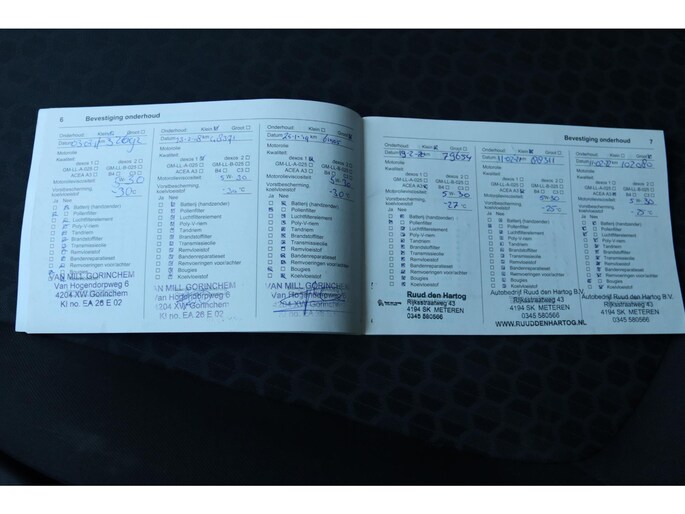 6 Bevestiging onderhoud
Onderhoud: Klein Groot
Datum:
Motorolie:
Kwaliteit:
dexos 1 dexos 2
GM-LL-A-025 GM-LL-B-025
ACEA A3 B4 C3
Motorolieviscositeit 5W-30
Vorstbescherming, koelvloeistof -30°
Ja Nee
Batterij (handzender)
Pollenfilter
Luchtfilterelement
Poly V-riem
Tandriem
Brandstoffilter
Transmissieolie
Remvloeistof
Bandenreparatieset
Remvoeringen voor/achter
Bougies
Koelvloeistof
VAN MILL GORINCHEM
Van Hogendorpweg 6
4204 XW Gorinchem
KI no. EA 26 E 02
Onderhoud: Klein Groot
Datum:
Motorolie:
Kwaliteit:
dexos 1 dexos 2
GM-LL-A-025 GM-LL-B-025
ACEA A3 B4 C3
Motorolieviscositeit 5W-30
Vorstbescherming, koelvloeistof -30°
Ja Nee
Batterij (handzender)
Pollenfilter
Luchtfilterelement
Poly V-riem
Tandriem
Brandstoffilter
Transmissieolie
Remvloeistof
Bandenreparatieset
Remvoeringen voor/achter
Bougies
Koelvloeistof
VAN MILL GORINCHEM
Van Hogendorpweg 6
4204 XW Gorinchem
KI no. EA 26 E 02
Onderhoud: Klein Groot
Datum:
Motorolie:
Kwaliteit:
dexos 1 dexos 2
GM-LL-A-025 GM-LL-B-025
ACEA A3 B4 C3
Motorolieviscositeit
Vorstbescherming, koelvloeistof -30
Ja Nee
Batterij (handzender)
Pollenfilter
Luchtfilterelement
Poly V-riem
Tandriem
Brandstoffilter
Transmissieolie
Remvloeistof
Bandenreparatieset
Remvoeringen voor/achter
Bougies
Koelvloeistof
VAN MILL GORINCHEM
Van Hogendorpweg 6
4204 XW Gorinchem
KI no. EA 26 E 02
Bevestiging onderhoud 7
Onderhoud: Klein Groot
Datum: 79654
Motorolie:
Kwaliteit:
dexos 1 dexos 2
GM-LL-A-025 GM-LL-B-025
ACEA A3 B4 C3
Motorolieviscositeit 5W30
Vorstbescherming, koelvloeistof -27°
Ja Nee
Batterij (handzender)
Pollenfilter
Luchtfilterelement
Poly V-riem
Tandriem
Brandstoffilter
Transmissieolie
Remvloeistof
Bandenreparatieset
Remvoeringen voor/achter
Bougies
Koelvloeistof
Ruud den Hartog
Rijksstraatweg 43
4194 SK METEREN
0345 580566
Onderhoud: Klein Groot
Datum:
Motorolie:
Kwaliteit:
dexos 1 dexos 2
GM-LL-A-025 GM-LL-B-025
ACEA A3 B4 C3
Motorolieviscositeit 5W30
Vorstbescherming, koelvloeistof -25°
Ja Nee
Batterij (handzender)
Pollenfilter
Luchtfilterelement
Poly V-riem
Tandriem
Brandstoffilter
Transmissieolie
Remvloeistof
Bandenreparatieset
Remvoeringen voor/achter
Bougies
Koelvloeistof
Autobedrijf Ruud den Hartog B.V.
Rijksstraatweg 43
4194 SK METEREN
0345 580566
WWW.RUUDDENHARTOG.NL
Onderhoud: Klein Groot
Datum:
Motorolie:
Kwaliteit:
dexos 1 dexos 2
GM-LL-A-025 GM-LL-B-025
ACEA A3 B4 C3
Motorolieviscositeit 5W-30
Vorstbescherming, koelvloeistof -25°
Ja Nee
Batterij (handzender)
Pollenfilter
Luchtfilterelement
Poly V-riem
Tandriem
Brandstoffilter
Transmissieolie
Remvloeistof
Bandenreparatieset
Remvoeringen voor/achter
Bougies
Koelvloeistof
Autobedrijf Ruud den Hartog B.V.
Rijksstraatweg 43
4194 SK METEREN
0345 580566